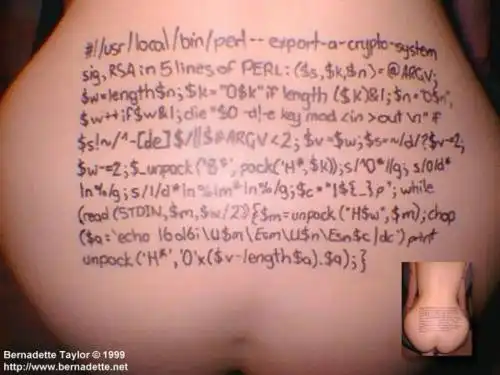 #!/usr/local/bin/perl -- export-a-crypto-system
sig, RSA in 5 lines of PERL: ($s,$k,$n)=@ARGV;
$w=length$n;$k="0$k"if length($k)&1;$n="0$n",
$w++if$w&1;die"$0 -d|-e key mod <in >out\n"if
$s!~/^-[de]$/||$#ARGV<2;$v=$w;$s=~/d/?$v-=2:
$w-=2;$_=unpack('B*',pack('H*',$k));s/^0*//g;s/0/d*
ln%/g;s/1/d*ln%lm*ln%/g;$c="1${_}p";while
(read(STDIN,$m,$w/2)){$m=unpack("H$w",$m);chop
($a=`echo 16o16i\U$m\Esm\U$n\Esn$c|dc`)print
unpack('H*','0'x($v-length$a).$a);}
Bernadette Taylor © 1999
http://www.bernadette.net